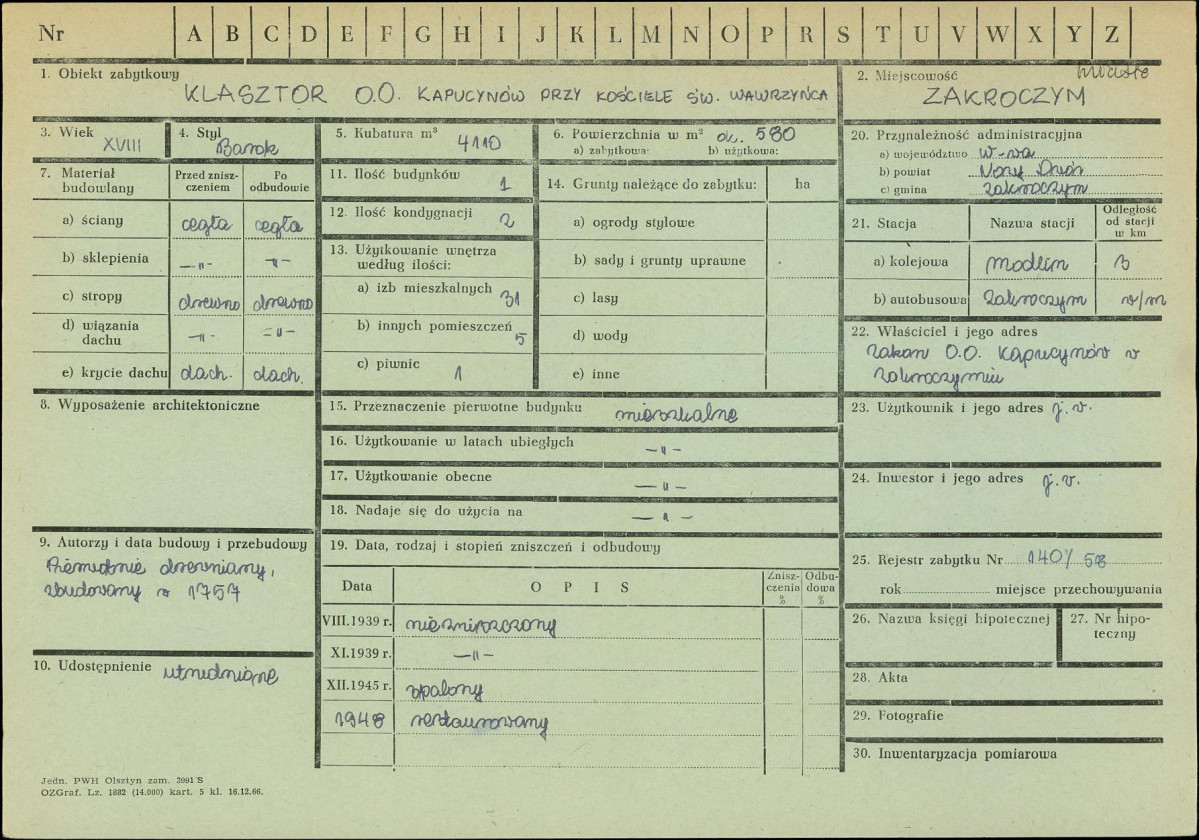 Nr A B C D E F G H I J K L M N O P R S T U V W X Y Z
1. Obiekt zabytkowy
KLASZTOR O.O. KAPUCYNÓW PRZY KOŚCIELE ŚW. WAWRZYŃCA
2. Miejscowość miasto
ZAKROCZYM
3. Wiek XVIII
4. Styl Barok
5. Kubatura m³ 4110
6. Powierzchnia w m² ok. 580
a) zabytkowa: b) użytkowa:
7. Materiał budowlany
Przed znisz-
czeniem
Po
odbudowie
a) ściany cegła cegła
b) sklepienia —„— —„—
c) stropy drewno drewno
d) wiązania
dachu —„— —„—
e) krycie dachu dach. dach.
8. Wyposażenie architektoniczne
9. Autorzy i data budowy i przebudowy
Pierwotnie drewniany,
zbudowany w 1757
10. Udostępnienie utrudnione
11. Ilość budynków 1
12. Ilość kondygnacji 2
13. Użytkowanie wnętrza
według ilości:
a) izb mieszkalnych 31
b) innych pomieszczeń 5
c) piwnic 1
14. Grunty należące do zabytku: ha
a) ogrody stylowe
b) sady i grunty uprawne
c) lasy
d) wody
e) inne
15. Przeznaczenie pierwotne budynku mieszkalne
16. Użytkowanie w latach ubiegłych —„—
17. Użytkowanie obecne —„—
18. Nadaje się do użycia na —„—
19. Data, rodzaj i stopień zniszczeń i odbudowy
Data OPIS
Znisz-
czenia
%
Odbu-
dowa
%
VIII.1939 r. niezniszczony
XI.1939 r. —„—
XII.1945 r. opalony
1948 restaurowany
20. Przynależność administracyjna
a) województwo w-wa
b) powiat Nowy Dwór
c) gmina Zakroczym
21. Stacja Nazwa stacji
Odległość
od stacji
w km
a) kolejowa Modlin 3
b) autobusowa Zakroczym w/m
22. Właściciel i jego adres
Zakon O.O. Kapucynów w
Zakroczymiu
23. Użytkownik i jego adres j.w.
24. Inwestor i jego adres j.w.
25. Rejestr zabytku Nr 140/58
rok miejsce przechowywania
26. Nazwa księgi hipotecznej
27. Nr hipo-
teczny
28. Akta
29. Fotografie
30. Inwentaryzacja pomiarowa
Jedn. PWH Olsztyn zam. 3991 S
OZGraf. Lz. 1882 (14.000) kart. 5 kl. 16.12.66.